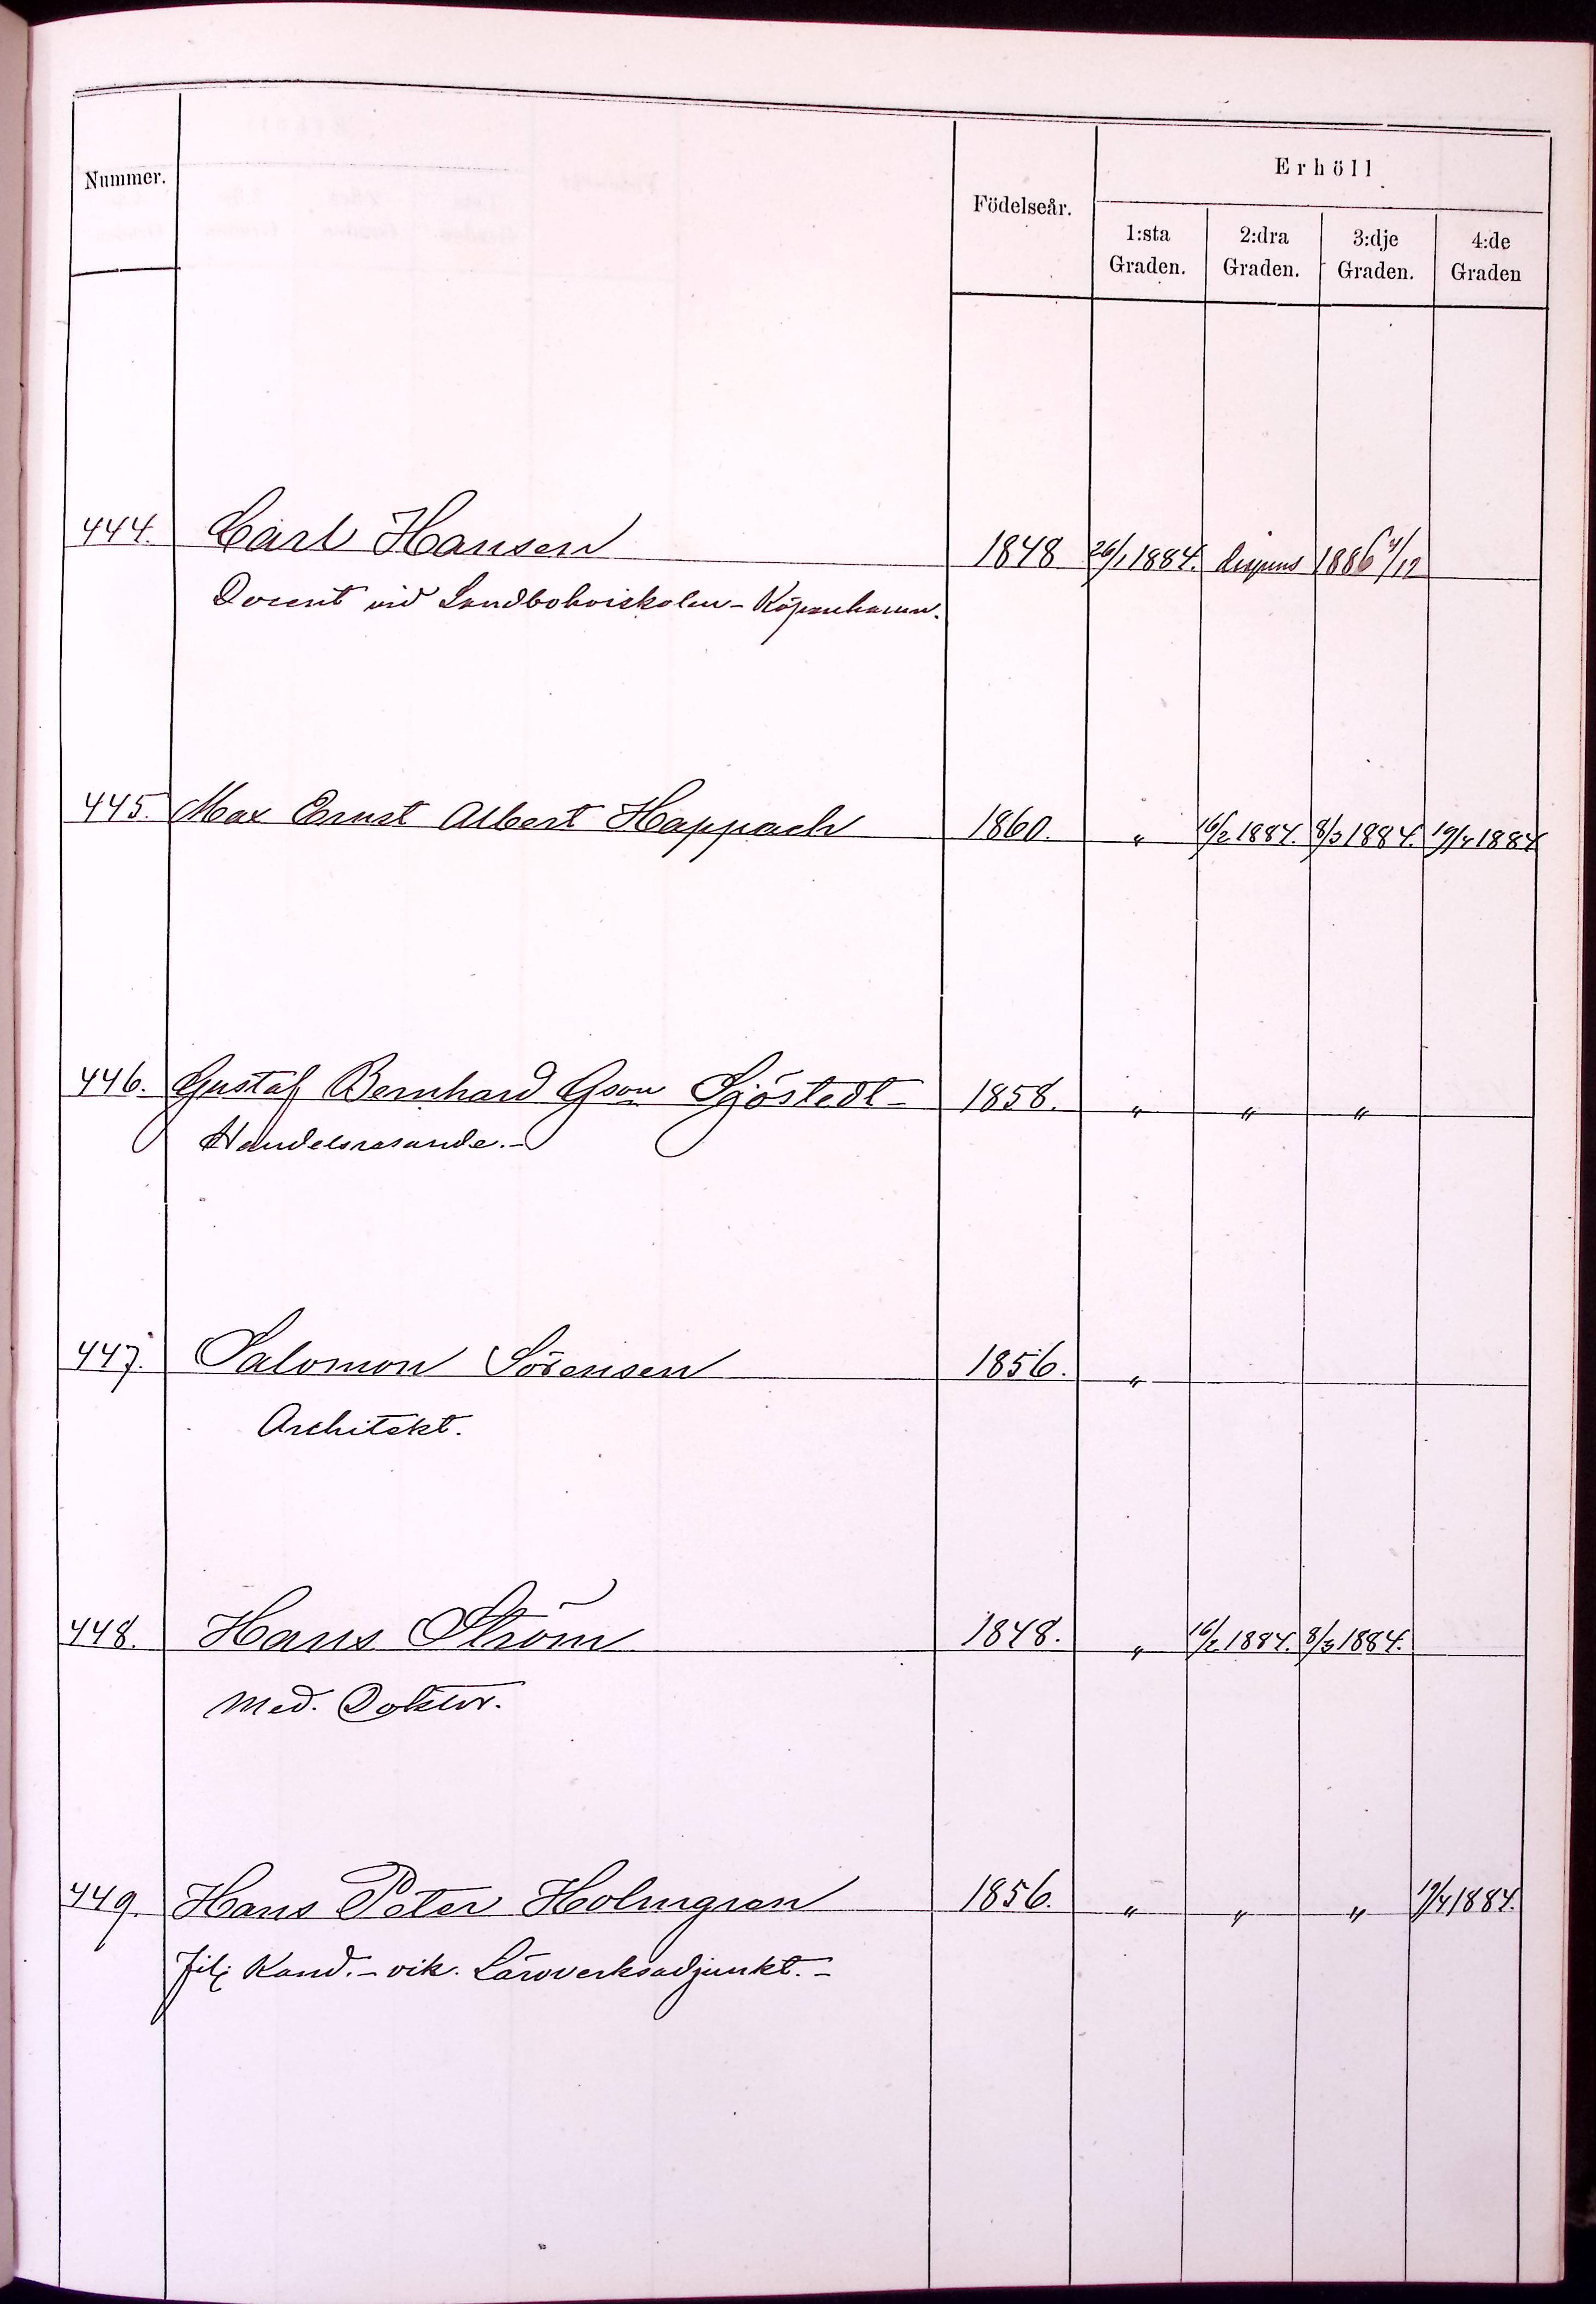 Nummer.
Födelseår.
Erhöll
1:sta Graden.
2:dra Graden.
3:dje Graden.
4:de Graden
444. Carl Hansen 1848 26/1 1884. dispens 1886 4/12
Docent vid Landbohoiskolen - Köpenhamn.
445. Max Ernst Albert Happach 1860. " 16/2 1884. 8/3 1884. 19/4 1884
446. Gustaf Bernhard Gson Sjöstedt - 1858. " " "
Handelsresande. -
447. Salomon Sörensen 1856. "
Architekt.
448. Hans Ström 1848. " 16/2 1884. 8/3 1884.
Med. Doktor.
449. Hans Peter Holmgren 1856. " " " 19/4 1884.
Fil. Kand. - vik. Läroverksadjunkt. -